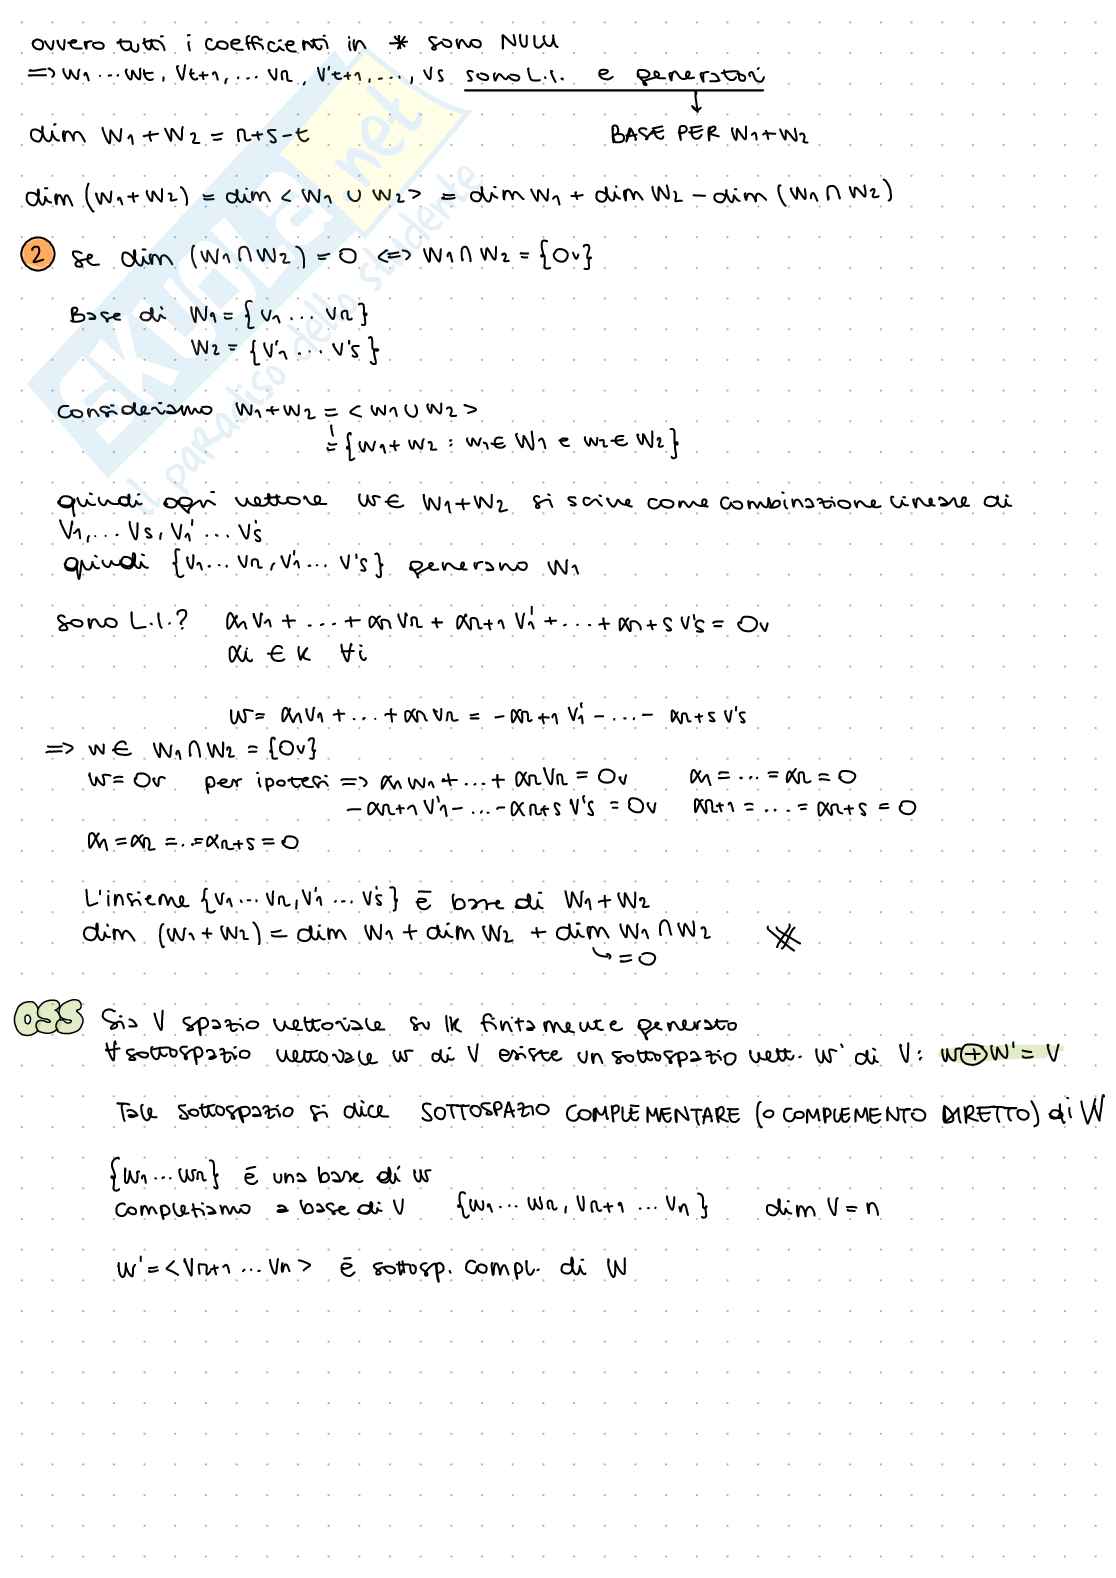 ovvero tutti i coefficienti in * sono NULLI
=> w1 ... wt, Vt+1, ... Vr, V't+1, ..., Vs sono L.I. e generatori
BASE PER W1+W2
dim W1+W2 = r+s-t
dim (W1+W2) = dim < W1 ∪ W2> = dim W1 + dim W2 - dim (W1 ∩ W2)
2 se dim (W1 ∩ W2) = 0 <=> W1 ∩ W2 = {0v}
Base di W1 = {v1 ... vr}
W2 = {v'1 ... v's}
Consideriamo W1+W2 = < W1 ∪ W2 >
= {w1+w2 : w1 ∈ W1 e w2 ∈ W2}
quindi ogni vettore w ∈ W1+W2 si scrive come combinazione lineare di
V1, ... Vs, V1' ... V's
quindi {v1 ... vr, v'1 ... v's} generano W1
sono L.I.? α1 V1 + ... + αr Vr + αr+1 V'1 + ... + αr+s V's = 0v
αi ∈ K ∀i
w = α1 V1 + ... + αr Vr = -αr+1 V'1 - ... - αr+s V's
=> w ∈ W1 ∩ W2 = {0v}
w = 0v per ipotesi => α1 w1 + ... + αr Vr = 0v α1 = ... = αr = 0
-αr+1 V'1 - ... - αr+s V's = 0v αr+1 = ... = αr+s = 0
α1 = αr = ... = αr+s = 0
L'insieme {v1 ... vr, v'1 ... v's} è base di W1+W2
dim (W1+W2) = dim W1 + dim W2 + dim W1 ∩ W2
↳ = 0
OSS Sia V spazio vettoriale su K finitamente generato
∀ sottospazio vettoriale w di V esiste un sottospazio vett. w' di V: w⊕W' = V
Tale sottospazio si dice SOTTOSPAZIO COMPLEMENTARE (O COMPLEMENTO DIRETTO) di W
{w1 ... wr} è una base di w
completiamo a base di V {w1 ... wr, Vr+1 ... Vn} dim V = n
w' = <Vr+1 ... Vn> è sottosp. compl. di W
SKUOLA.net
il paradiso dello studente